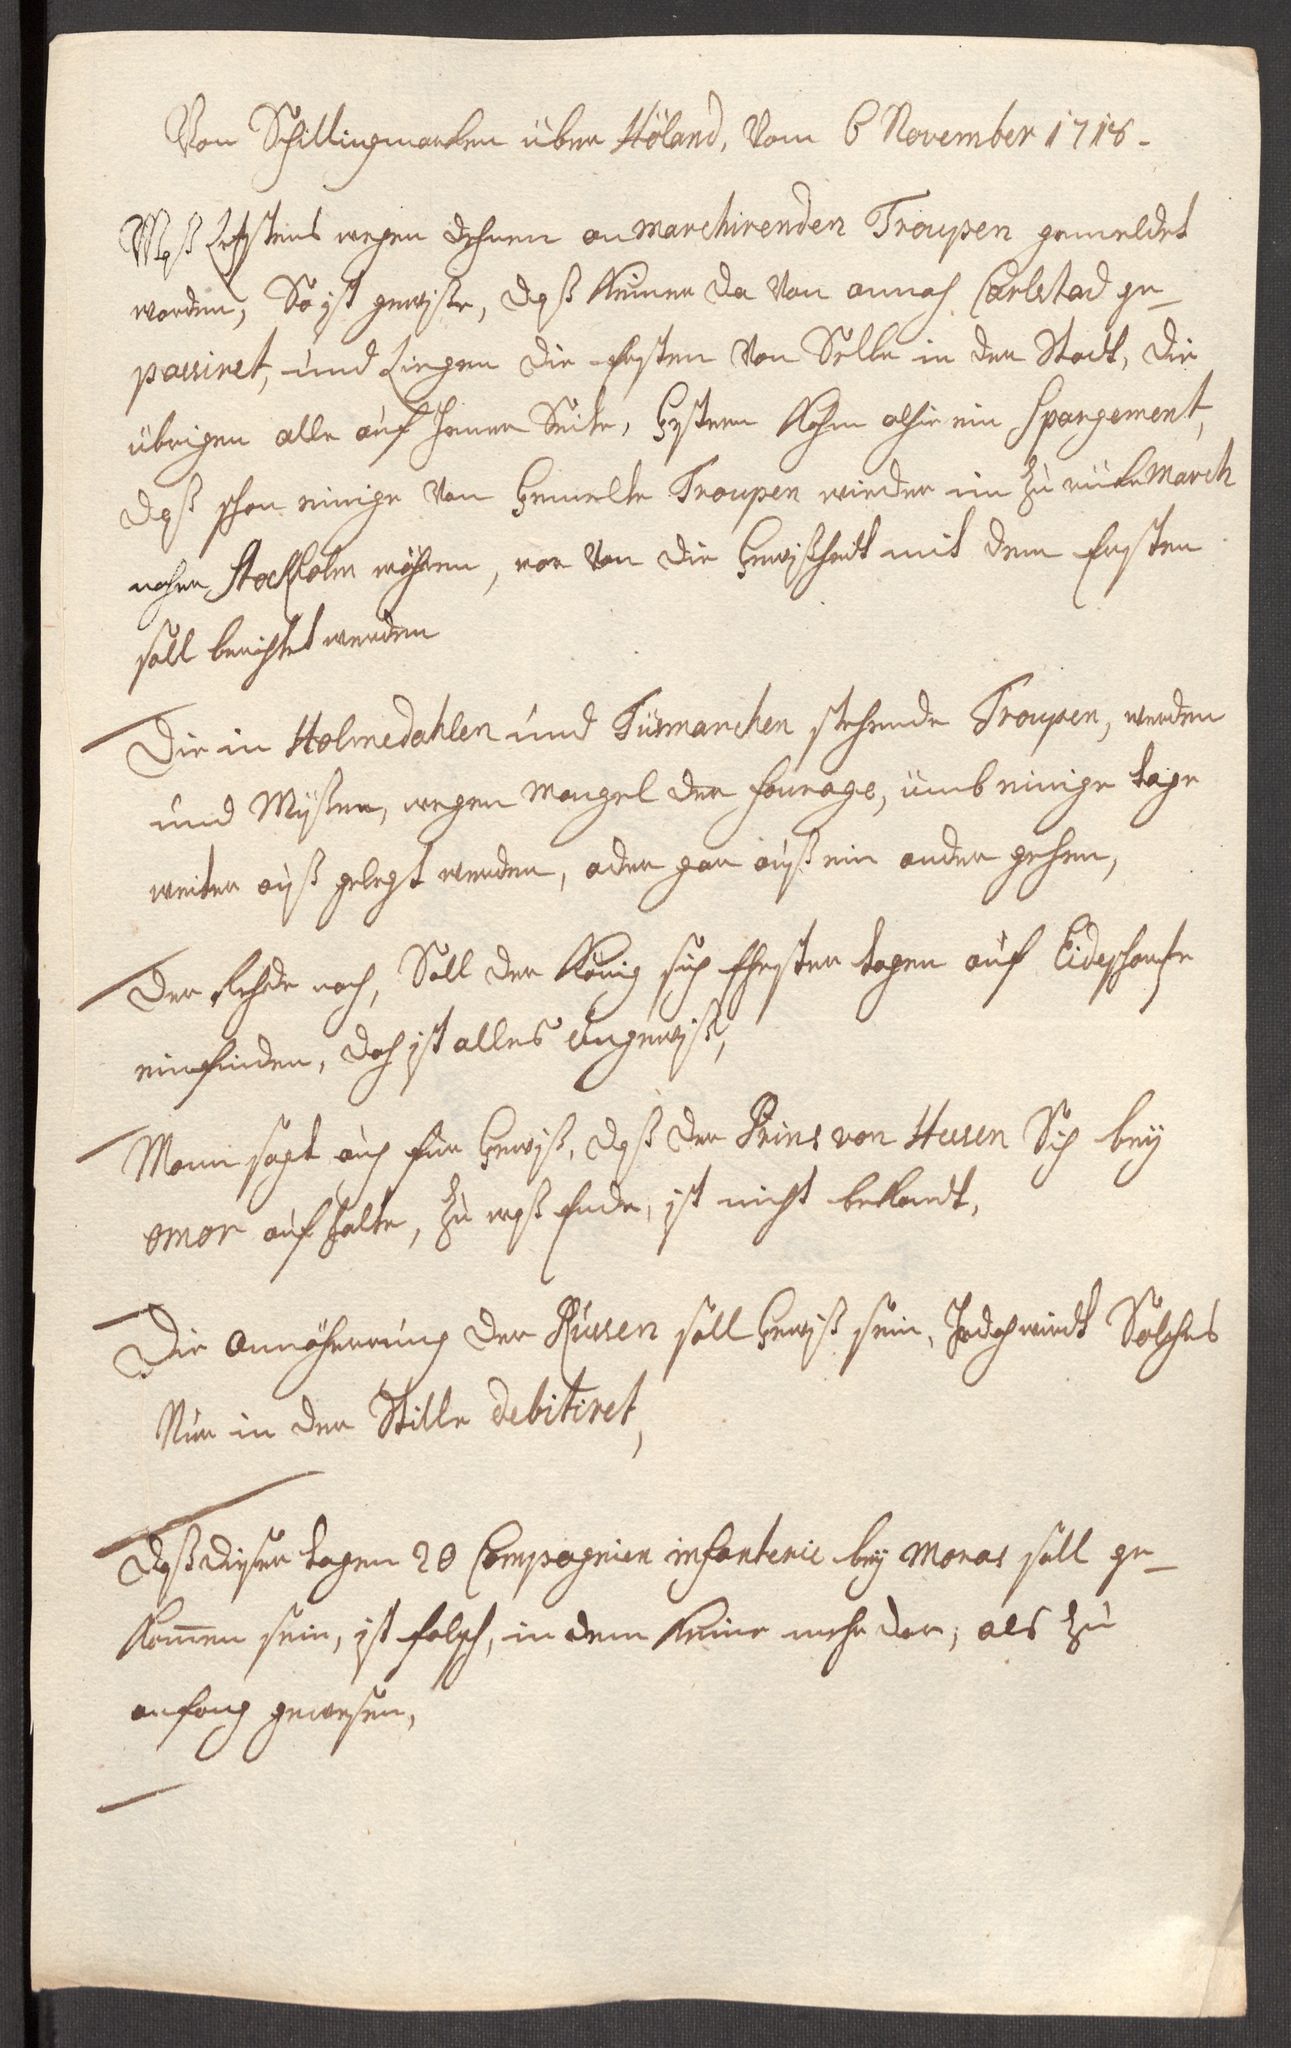 Von Schillingmarken über Höland, Vom 6 November 1718.
Waß Letztens wegen dehnen an marchirenden Troupen gemeldet
worden, So ist gewiße, daß Keiner da Von annoch Carlstad ge-
passiret, und Liegen die Ersten Von Selbe in der Stadt, die
übrigen alle auf Jener Seite, Gestern Kahm alhie ein Spargement,
daß schon einige Von Gemelte Troupen wieder im Zu rücke March
naher Stockholm währen, wor Von die Gewißheit mit dem Ersten
soll berichtet werden
Die in Holmedahlen und Tüsmarchen stehende Troupen, werden
und Müßen, wegen Mangel der Fourage, ümb einige tage
weiter auß gelegt werden, oder gar auß ein ander gehen,
Der Rehde nach, Soll der König sich Ehester tagen auf Eideschantze
einfinden, doch ist alles Ungewiß,
Mann sagt auch für Gewiß, daß der Prins von Hessen Sich bey
omor auf halte, Zu waß Ende, ist nicht bekandt,
Die Annäherrung der Russen soll Gewiß sein, Jedoch wirdt Solches
Nur in der Stille debitiret,
Daß dieser tagen 20 Compagnien infanterie bey Moras soll ge-
Kommen sein, ist falsch, in dem Keine mehr dar, als Zu
anfang gewesen,